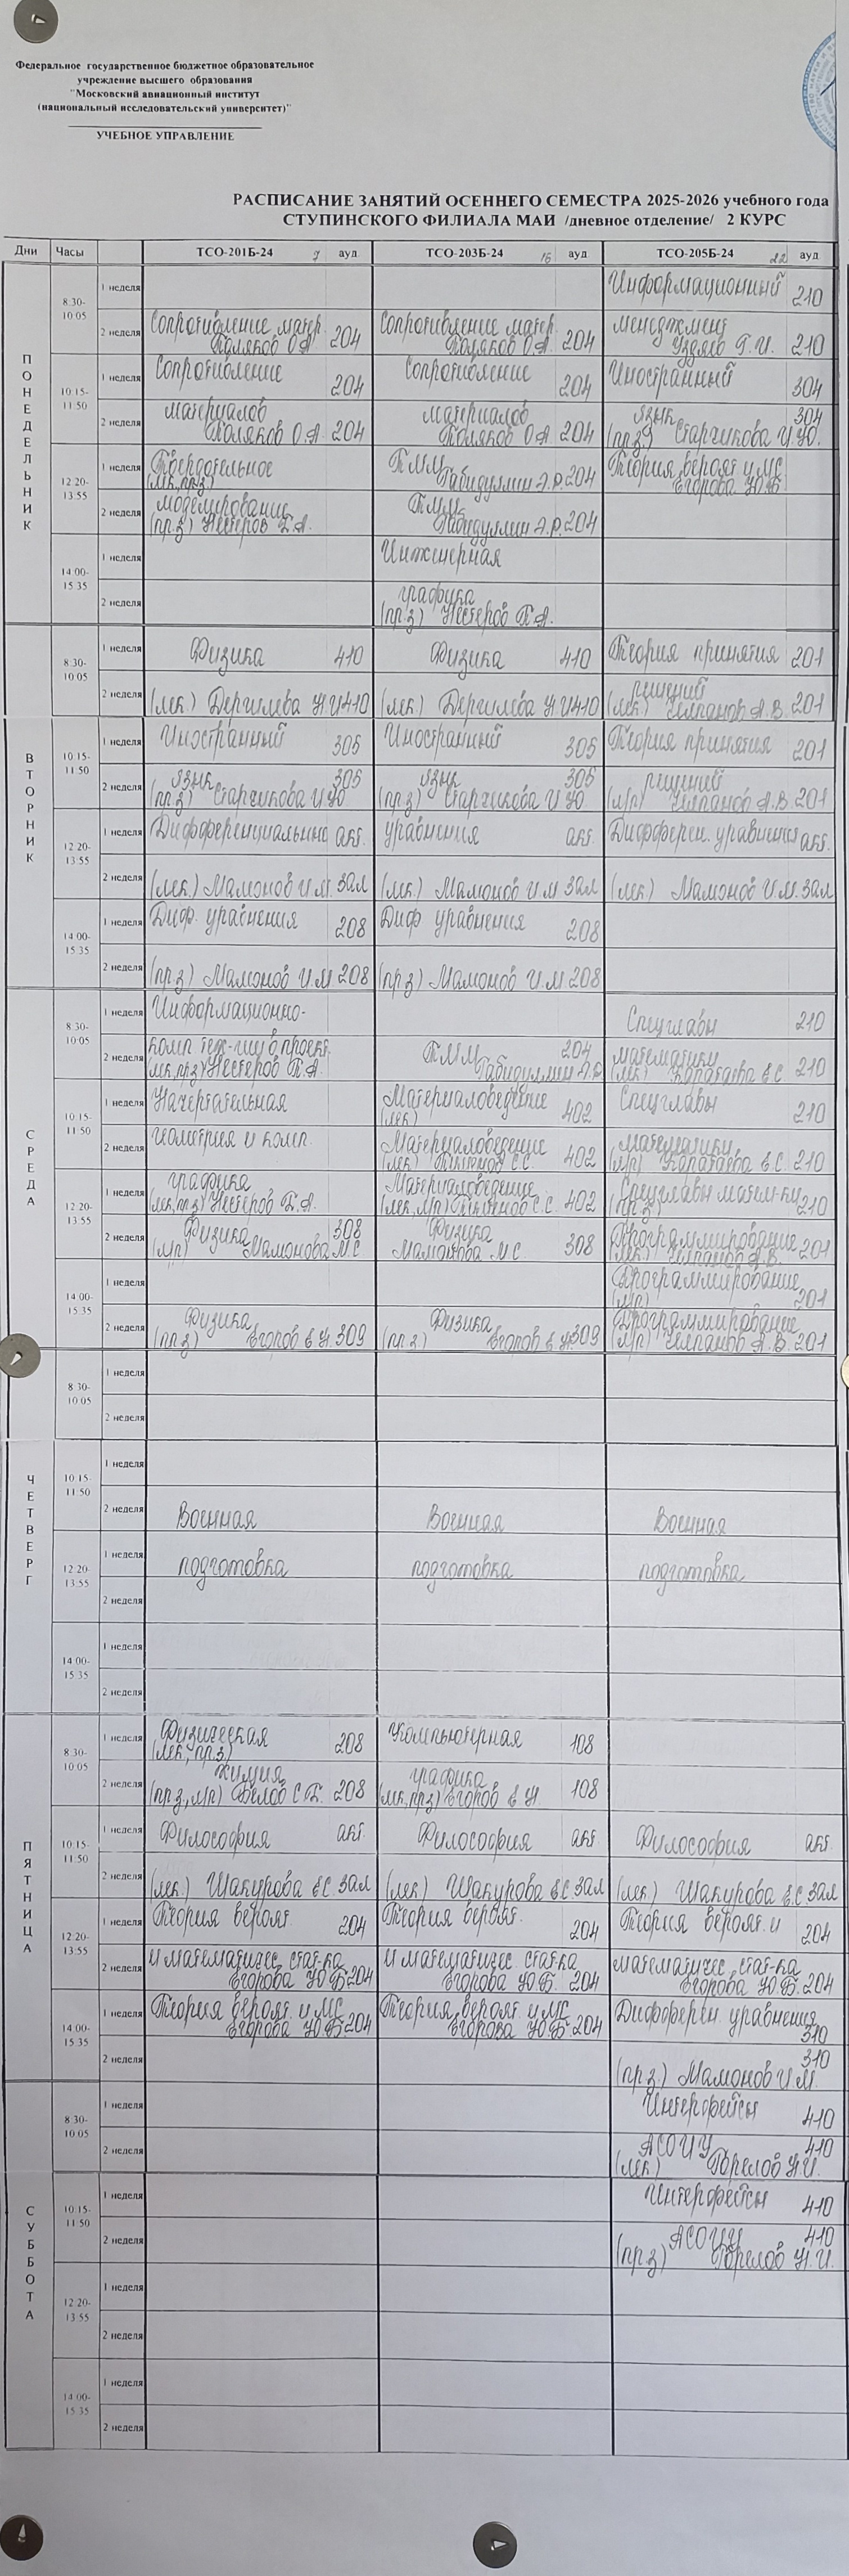 Федеральное государственное бюджетное образовательное
учреждение высшего образования
"Московский авиационный институт
(национальный исследовательский университет)"
УЧЕБНОЕ УПРАВЛЕНИЕ
РАСПИСАНИЕ ЗАНЯТИЙ ОСЕННЕГО СЕМЕСТРА 2025-2026 учебного года
СТУПИНСКОГО ФИЛИАЛА МАИ /дневное отделение/ 2 КУРС
Дни Часы ТСО-201Б-24 9 ауд ТСО-203Б-24 16 ауд ТСО-205Б-24 22 ауд
ПОНЕДЕЛЬНИК
8:30-10:05
1 неделя Информационный 210
2 неделя Сопротивление матер. Поляков О.А. 204 Сопротивление матер. Поляков О.А. 204 менеджмент Г.И. 210
10:15-11:50
1 неделя Сопротивление 204 Сопротивление 204 Иностранный 304
2 неделя материалов Поляков О.А. 204 материалов Поляков О.А. 204 язык 304 (пр.з) Старчикова И.Ю.
12:20-13:55
1 неделя Твердотельное (лек, пр.з) ТММ Габидуллин Э.Р. 204 Теория вероят. и МС Егорова Ю.Б.
2 неделя моделирование (пр.з) Нестеров П.А. ТММ Габидуллин Э.Р. 204
14:00-15:35
1 неделя Инженерная
2 неделя графика (пр.з) Нестеров П.А.
ВТОРНИК
8:30-10:05
1 неделя Физика 410 Физика 410 Теория принятия 201
2 неделя (лек.) Дергилева 410 (лек.) Дергилева 410 решений (лек.) А.В. 201
10:15-11:50
1 неделя Иностранный 305 Иностранный 305 Теория принятия 201
2 неделя язык 305 (пр.з) Старчикова И Ю язык 305 (пр.з) Старчикова И Ю решений (л/р) А.В. 201
12:20-13:55
1 неделя Дифференциальные акт. уравнения акт. Дифферен. уравнения акт.
2 неделя (лек.) Мамонов И.М. зал (лек.) Мамонов И.М. зал (лек.) Мамонов И.М. зал
14:00-15:35
1 неделя Диф. уравнения 208 Диф уравнения 208
2 неделя (пр.з) Мамонов И.М 208 (пр.з) Мамонов И.М 208
СРЕДА
8:30-10:05
1 неделя Информационно- Спецглавы 210
2 неделя комп тех-гии в проект. лек, пр.з) Нестеров П.А. ТММ 204 Габидуллин Э.Р математики (лек.) Е.С 210
10:15-11:50
1 неделя Начертательная Материаловедение (лек) 402 Спецглавы 210
2 неделя геометрия и комп. Материаловедение (лек) С.С. 402 математики (л/р) Е.С. 210
12:20-13:55
1 неделя графика (лек, пр.з) Нестеров П.А. Материаловедение (лек, л/р) С.С. 402 Спецглавы матем-ки (пр.з) 210
2 неделя Физика 308 (л/р) Мамонова МС Физика Мамонова МС 308 Программирование (лек) А.В. 201
14:00-15:35
1 неделя Программирование (л/р) 201
2 неделя Физика (пр.з) Егоров 309 Физика (пр.з) Егоров 309 Программирование (л/р) А.В. 201
ЧЕТВЕРГ
8:30-10:05
1 неделя
2 неделя
10:15-11:50
1 неделя
2 неделя Военная Военная Военная
12:20-13:55
1 неделя подготовка подготовка подготовка
2 неделя
14:00-15:35
1 неделя
2 неделя
ПЯТНИЦА
8:30-10:05
1 неделя Физическая (лек, пр.з) 208 Компьютерная 108
2 неделя химия (пр.з, л/р) Белов 208 графика (лек, пр.з) Егоров 108
10:15-11:50
1 неделя Философия акт. Философия акт. Философия акт.
2 неделя (лек.) Шакурова Е.С. зал (лек.) Шакурова Е.С. зал (лек.) Шакурова Е.С. зал
12:20-13:55
1 неделя Теория вероят. 204 Теория вероят. 204 Теория вероят. и 204
2 неделя и математичес. стат-ка Егорова Ю.Б 204 и математичес. стат-ка Егорова Ю.Б. 204 математичес. стат-ка Егорова Ю.Б. 204
14:00-15:35
1 неделя Теория вероят. и МС Егорова Ю.Б 204 Теория вероят. и МС Егорова Ю.Б. 204 Дифферен. уравнения 310
2 неделя 310 (пр.з.) Мамонов И.М.
СУББОТА
8:30-10:05
1 неделя Интерфейсы 410
2 неделя АСОИУ 410 (лек) Горелов
10:15-11:50
1 неделя Интерфейсы 410
2 неделя АСОИУ 410 (пр.з) Горелов
12:20-13:55
1 неделя
2 неделя
14:00-15:35
1 неделя
2 неделя